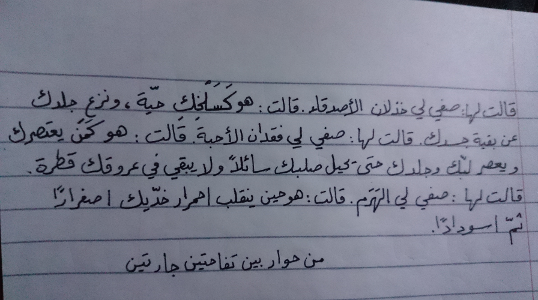 قالت لها: صفي لي خذلان الأصدقاء. قالت: هو كَسَلخِكِ حيّة، ونزع جلدك
عن بقية جسدك. قالت لها: صفي لي فقدان الأحبة. قالت: هو كمن يعتصرك
و يعصر لبّك وجلدك حتى تحيل صلبك سائلاً ولا يبقي في عروقك قطرة.
قالت لها: صفي لي الهَرَم. قالت: هو حين ينقلب احمرار خدّيك اصفرارًا
ثمّ اسودادًا.
من حوار بين تفاحتين جارتين